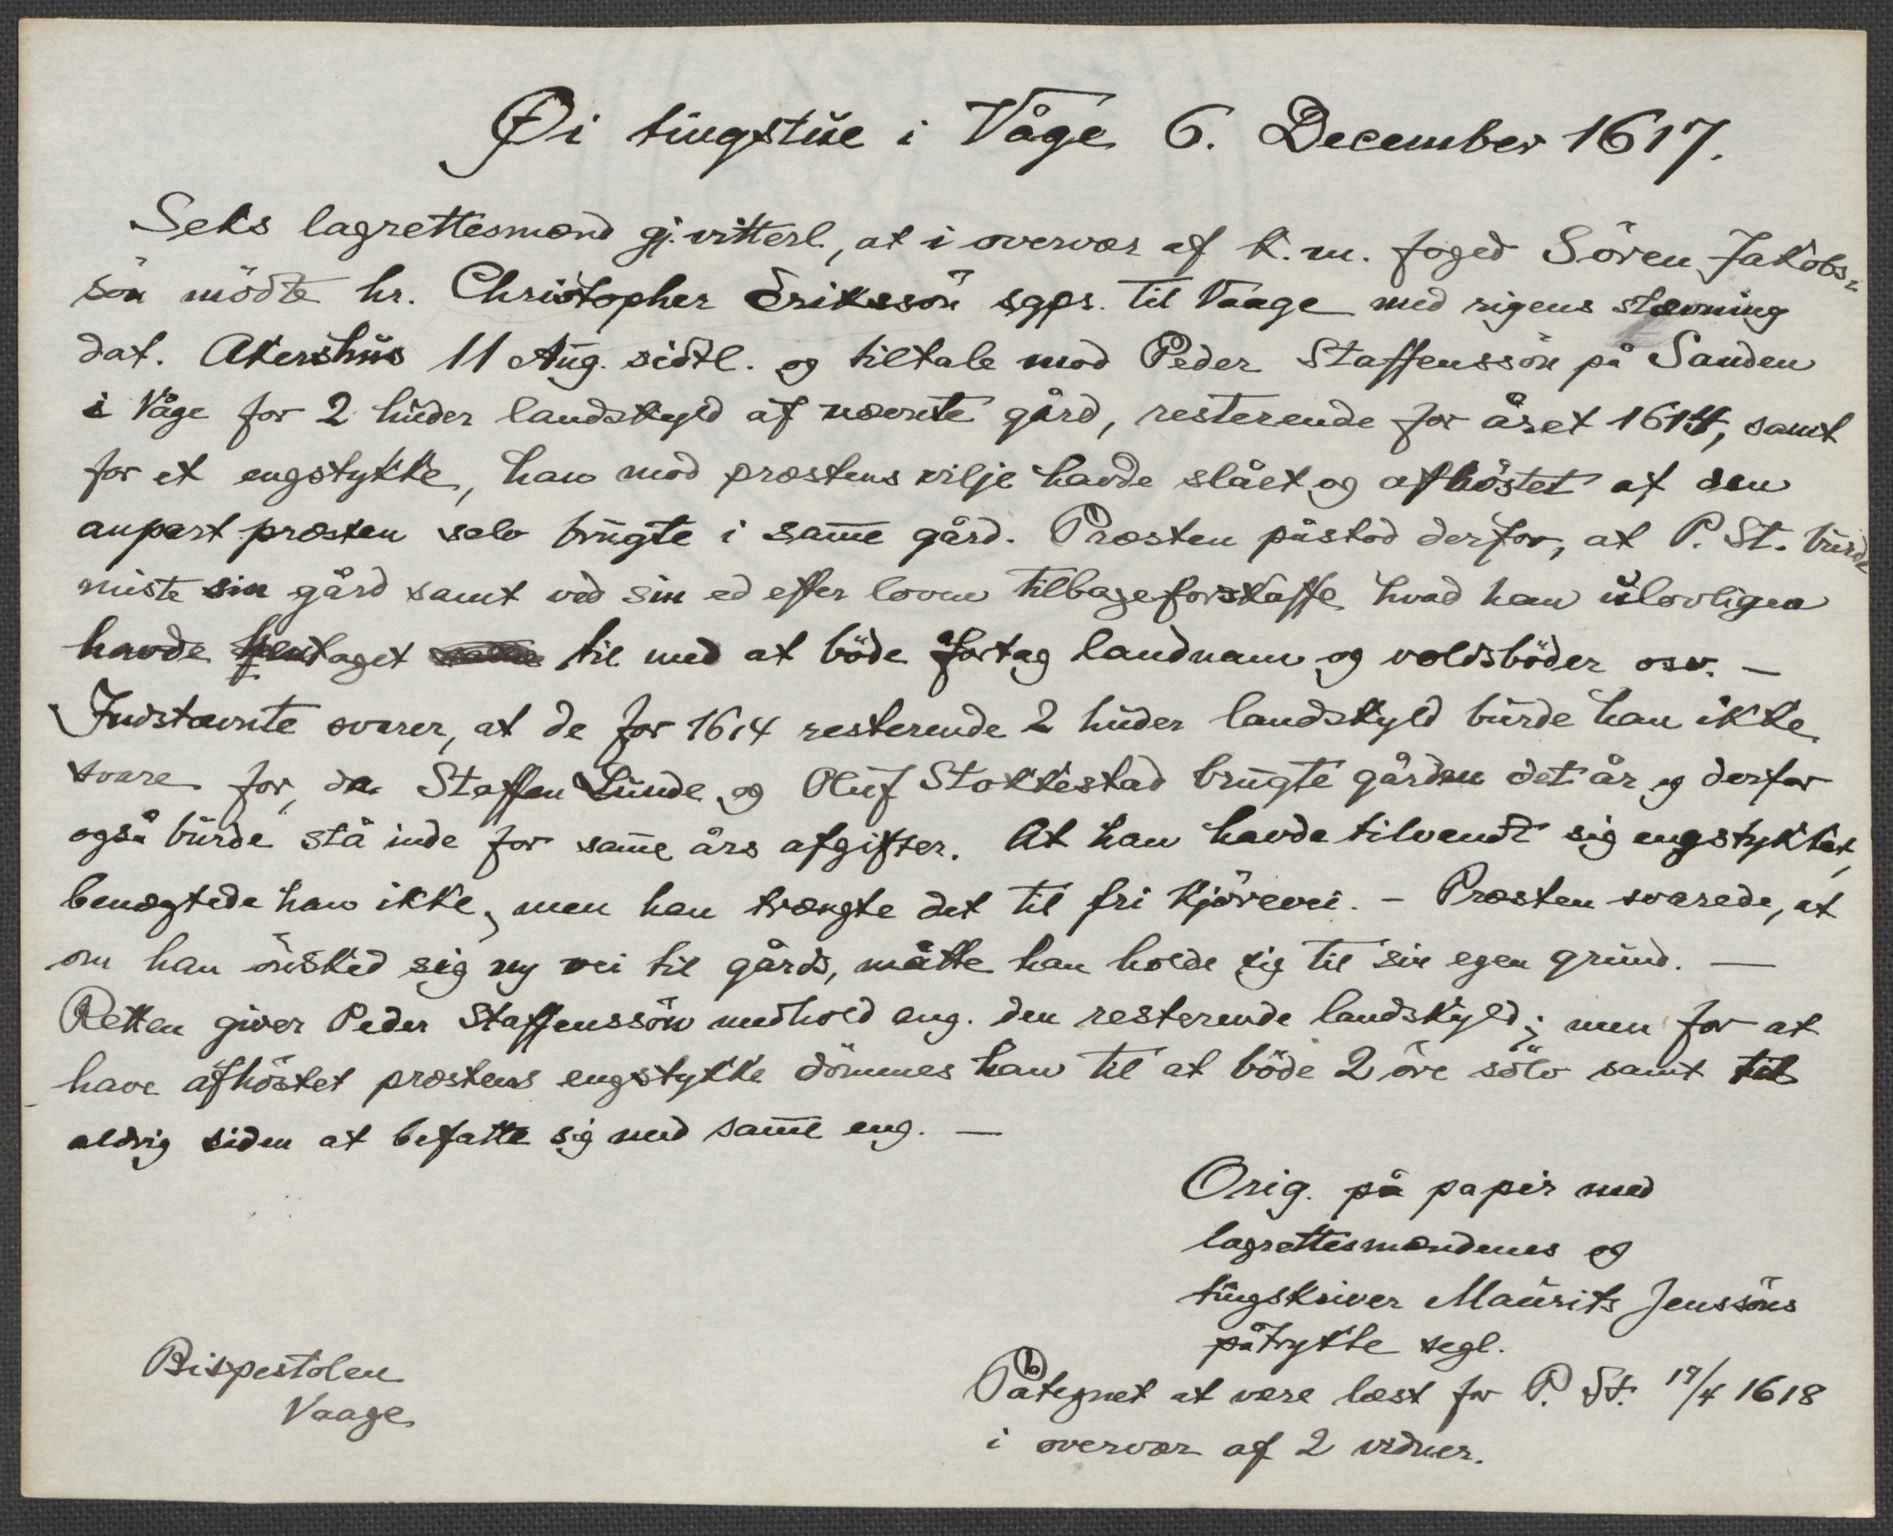 Øi tingstue i Våge 6. December 1617.
Seks lagrettesmænd gj. vitterl., at i overvær af k. m. foged Sören Jakobs-
sön mödte hr. Christopher Erikssön sgpr. til Vaage med rigens stævning
dat. Akershus 11 Aug. sidtl. og tiltale mod Peder Staffenssön på Sanden
i Våge for 2 huder landskyld af nævnte gård, resterende for året 1614, samt
for et engstykke, han mod præstens vilje havde slået og afhöstet af den
anpart præsten selv brugte i sam̄e gård. Præsten påstod derfor, at P. St. burde
miste sin gård samt ved sin ed efter loven tilbageforskaffe hvad han ulovligen
havde frataget til med at böde fortag landnam og voldsböder osv. —
Indstævnte svarer, at de for 1614 resterende 2 huder landskyld burde han ikke
svare for, da Staffen Lunde og Oluf Stokkestad brugte gården det år og derfor
også burde stå inde for sam̄e års afgifter. At han havde tilvendt sig engstykket,
benægtede han ikke, men han trængte det til fri kjörevei. – Præsten svarede, at
om han önsked sig ny vei til gårds, måtte han holde sig til sin egen grund. —
Retten giver Peder Staffenssön medhold ang. den resterende landskyld; men for at
have afhöstet præstens engstykke dömmes han til at böde 2 öre sölv samt til
aldrig siden at befatte sig med sam̄e eng. —
Orig. på papir med
lagrettesmændenes og
tingskriver Maurits Jenssöns
påtrykte segl.
Påtegnet at være læst for P. St. 17/4 1618
i overvær af 2 vidner.
Bispestolen
Vaage